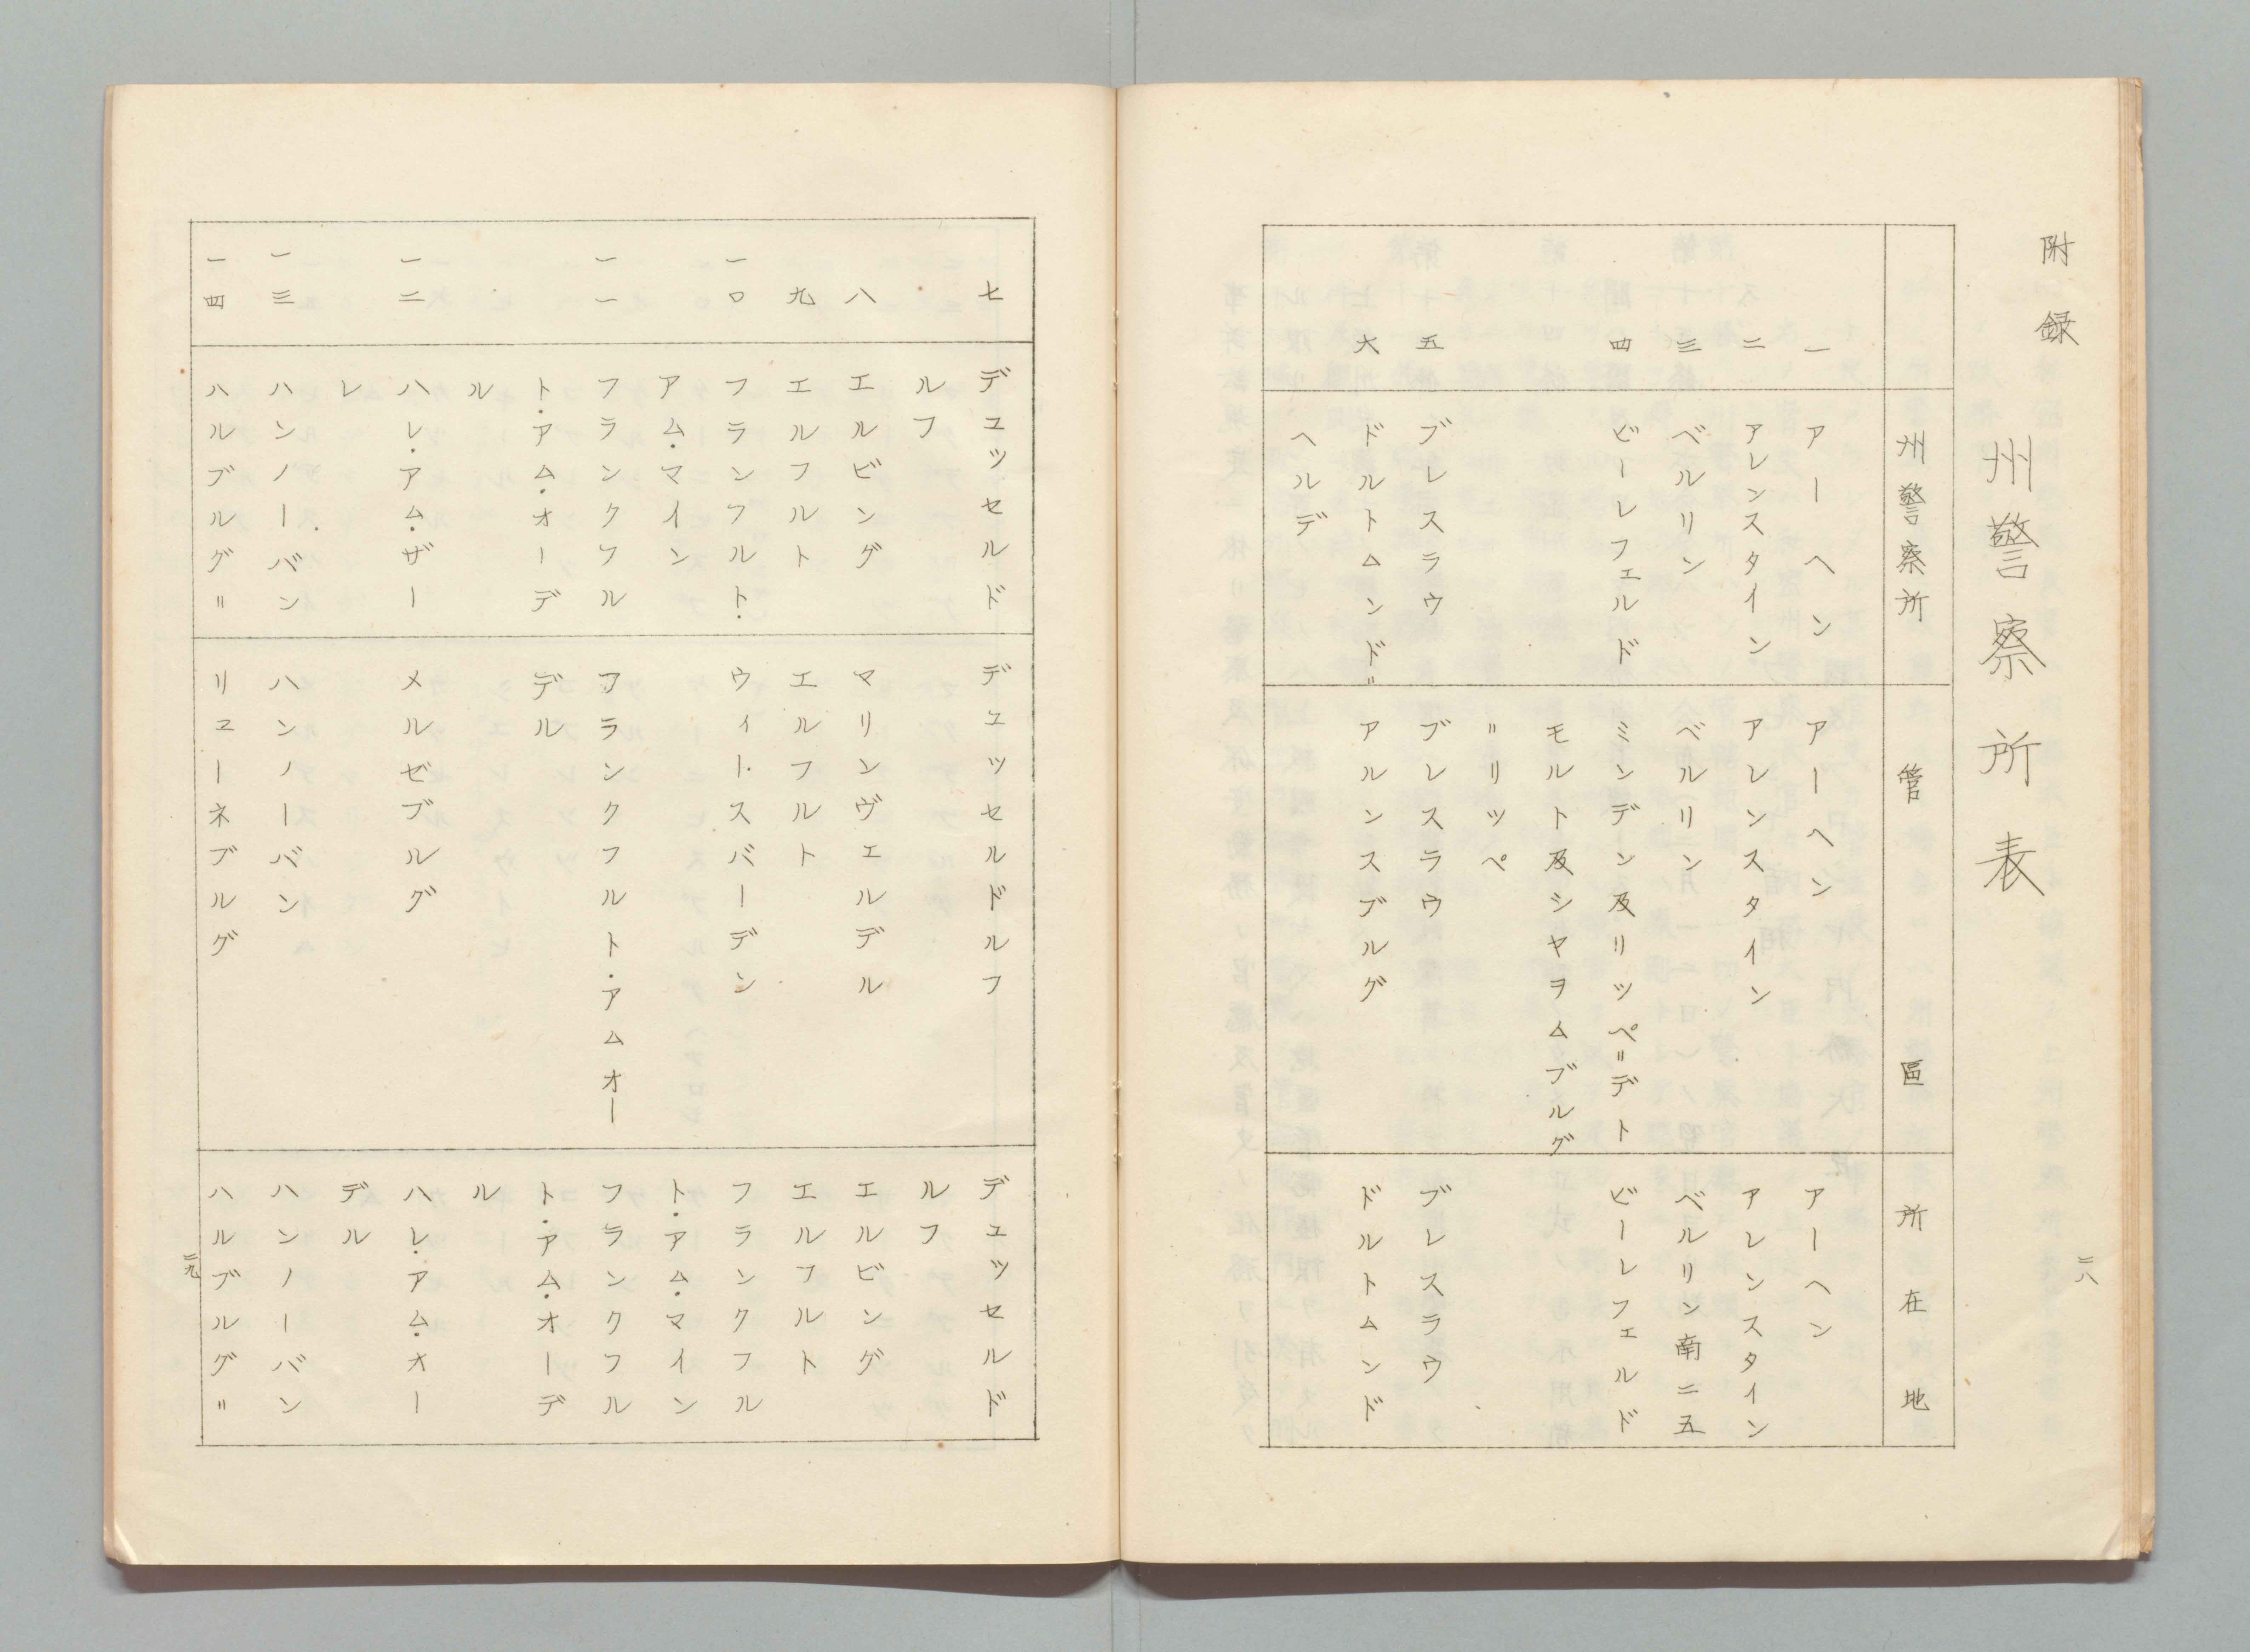 附録
州警察所表
州警察所 管區 所在地
一 アーヘン アーヘン アーヘン
二 アレンスタイン アレンスタイン アレンスタイン
三 ベルリン ベルリン ベルリン南二五
四 ビーレフェルド ミンデン及リッペ゠デト ビーレフェルド
モルト及シヤヲムブルグ
゠リッペ
五 ブレスラウ ブレスラウ ブレスラウ
六 ドルトムンド゠ アルンスブルグ ドルトムンド
ヘルデ
二八
七 デュッセルド デュッセルドルフ デュッセルド
ルフ ルフ
八 エルビング マリンヴェルデル エルビング
九 エルフルト エルフルト エルフルト
一〇 フランフルト・ ウィートスバーデン フランクフル
アム・マイン ト・アム・マイン
一一 フランクフル フランクフルト・アムオー フランクフル
ト・アム・オーデ デル ト・アム・オーデ
ル ル
一二 ハレ・アム・ザー メルゼブルグ ハレ・アム・オー
レ デル
一三 ハンノーバン ハンノーバン ハンノーバン
一四 ハルブルグ゠ リユーネブルグ ハルブルグ゠
二九